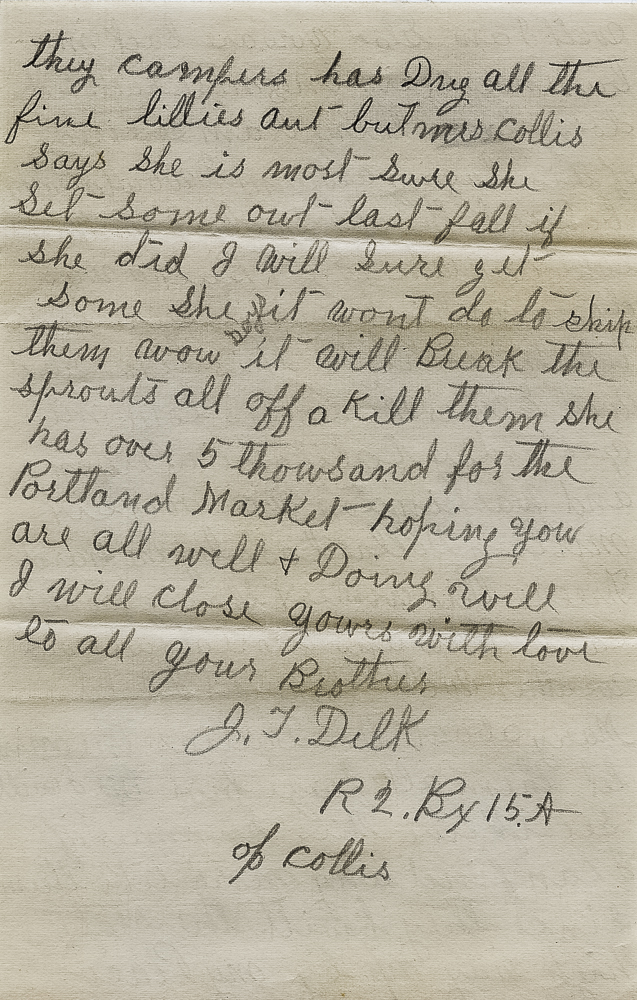 they campers has Dug all the
fine lillies aut but mrs collis
says she is most sure she
Set some owt last fall if
she did I will sure get
some she says it wont do to ship
them wow it will Break the
sprouts all off a Kill them she
has over 5 thowsand for the
Portland Market hoping you
are all well + Doing well
I will close yours with love
to all your Brother
J. T. Delk
R 2. Bx 15.A
of collis